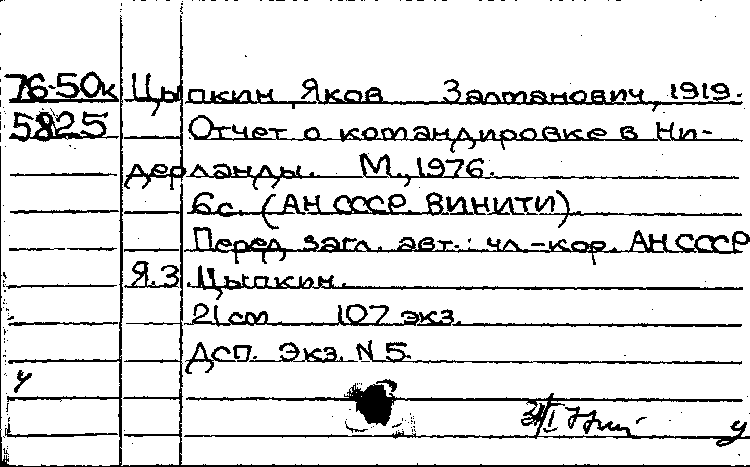 76-50к Цыпкин, Яков Залманович, 1919-
5825 Отчет о командировке в Ни-
дерланды. М., 1976.
6с. (АН СССР. ВИНИТИ).
Перед загл. авт.: чл.-кор. АН СССР
Я.З. Цыпкин.
21 cm 107 экз.
Дсп. Экз. N 5.
у
у